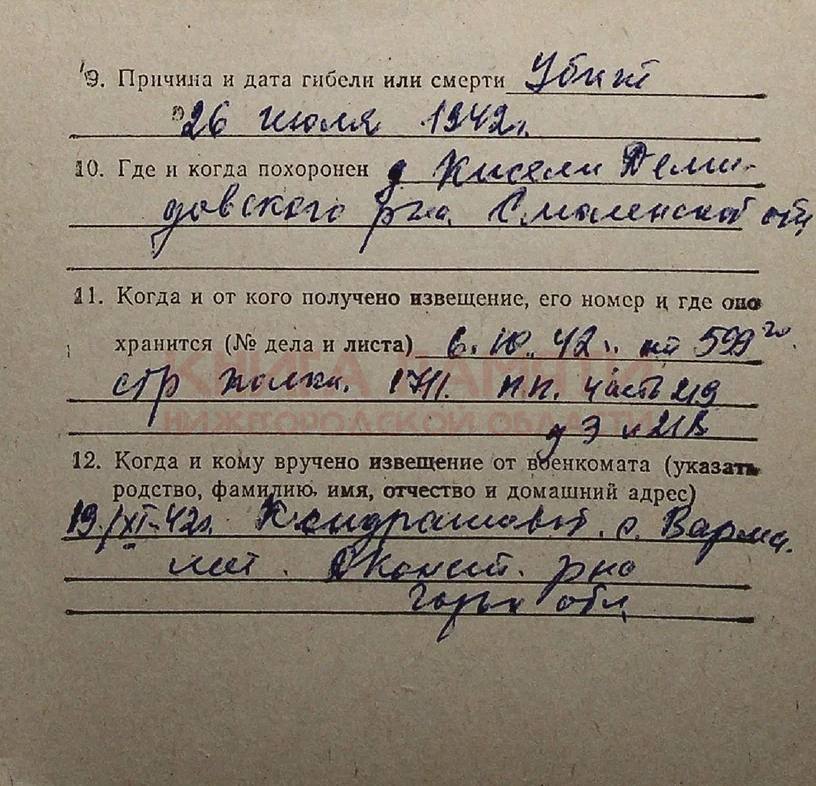 9. Причина и дата гибели или смерти Убит
26 июля 1942г.
10. Где и когда похоронен д Кисели Деми-
довского р-на Смоленской обл
11. Когда и от кого получено извещение, его номер и где оно
хранится (№ дела и листа) 6. 10. 42 г. 599 го
стр полка. часть 219
КНИГА ПАМЯТИ
НИЖЕГОРОДСКОЙ ОБЛАСТИ
д 3
12. Когда и кому вручено извещение от военкомата (указать
родство, фамилию, имя, отчество и домашний адрес)
19/XI-42г. Кондрашовой. с. Варма-
лей. Дконст. р-на
Горьк обл